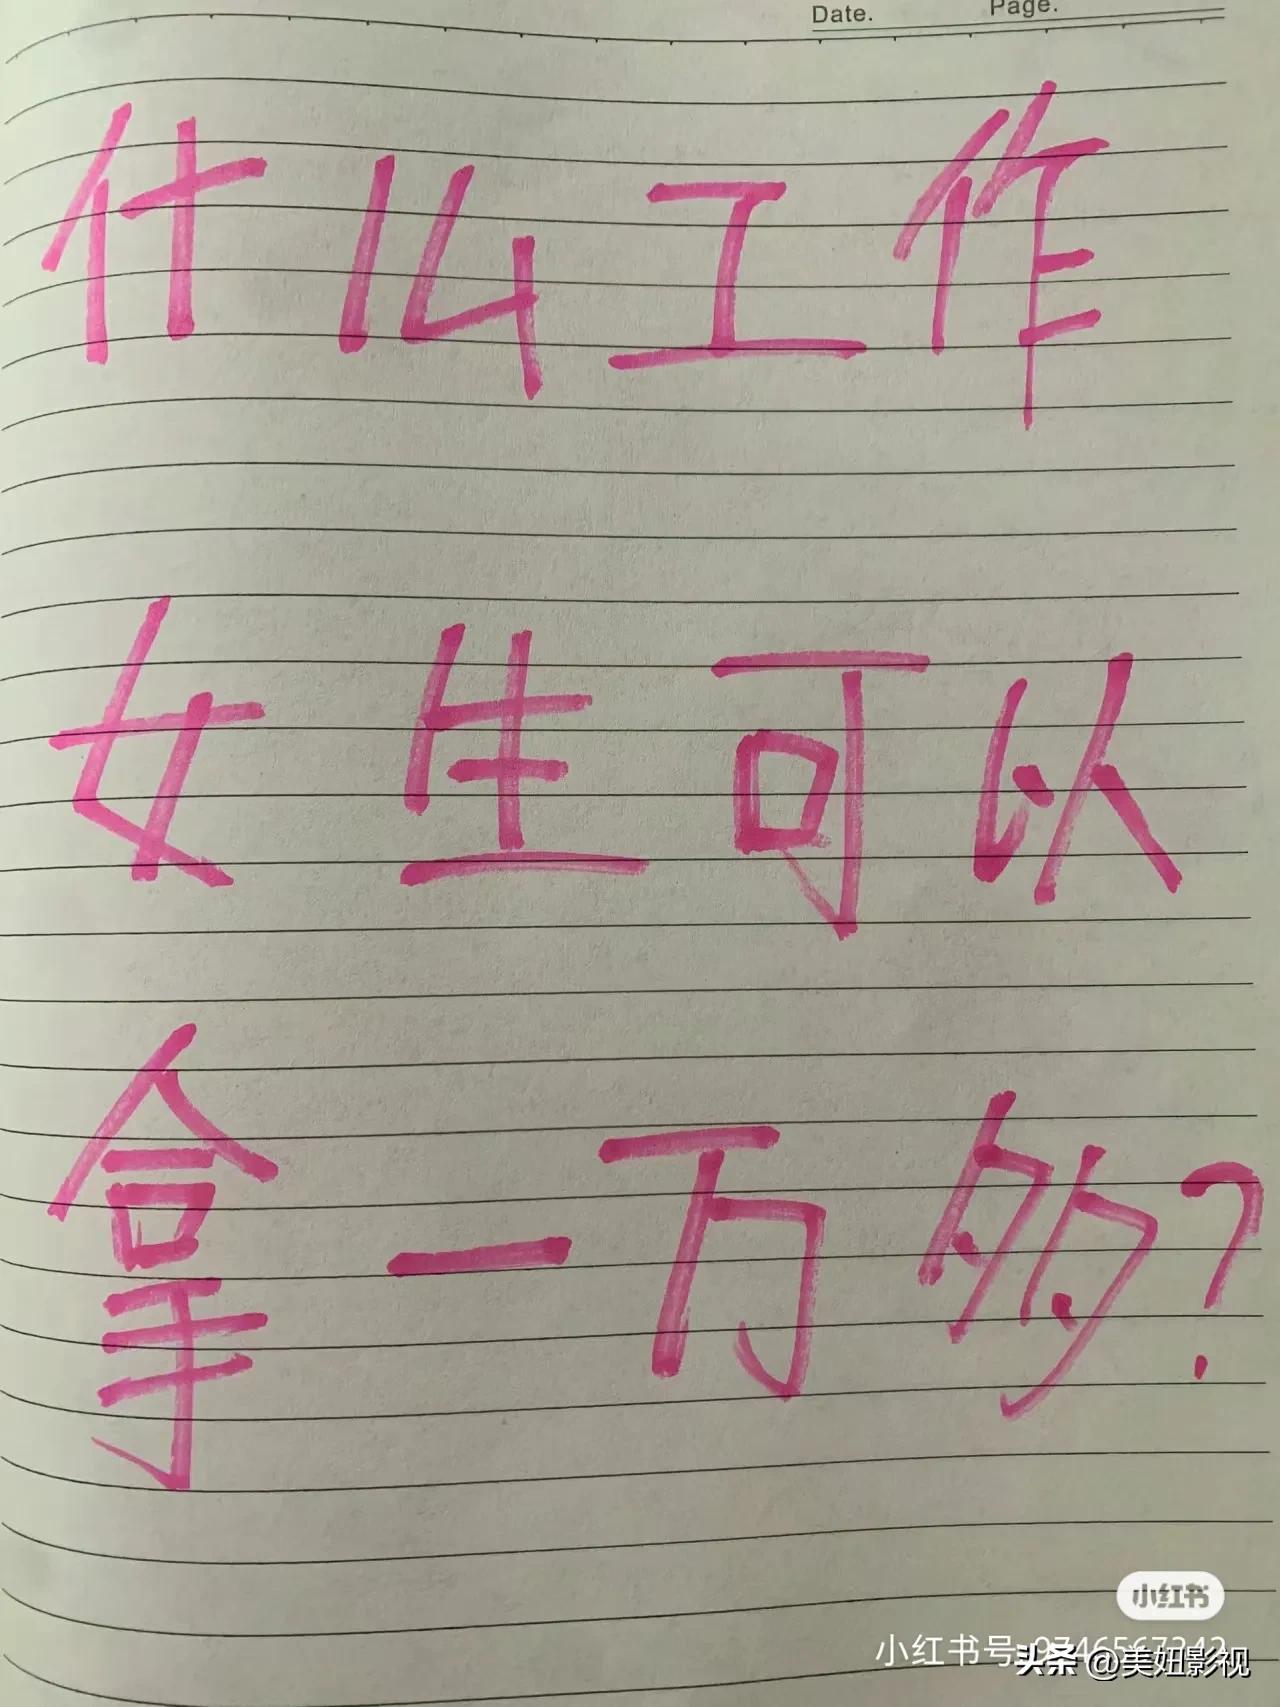 Date. Page.
什么工作
女生可以
拿一万的?
小红书
小红书号:9746567242
头条 @美妞影视